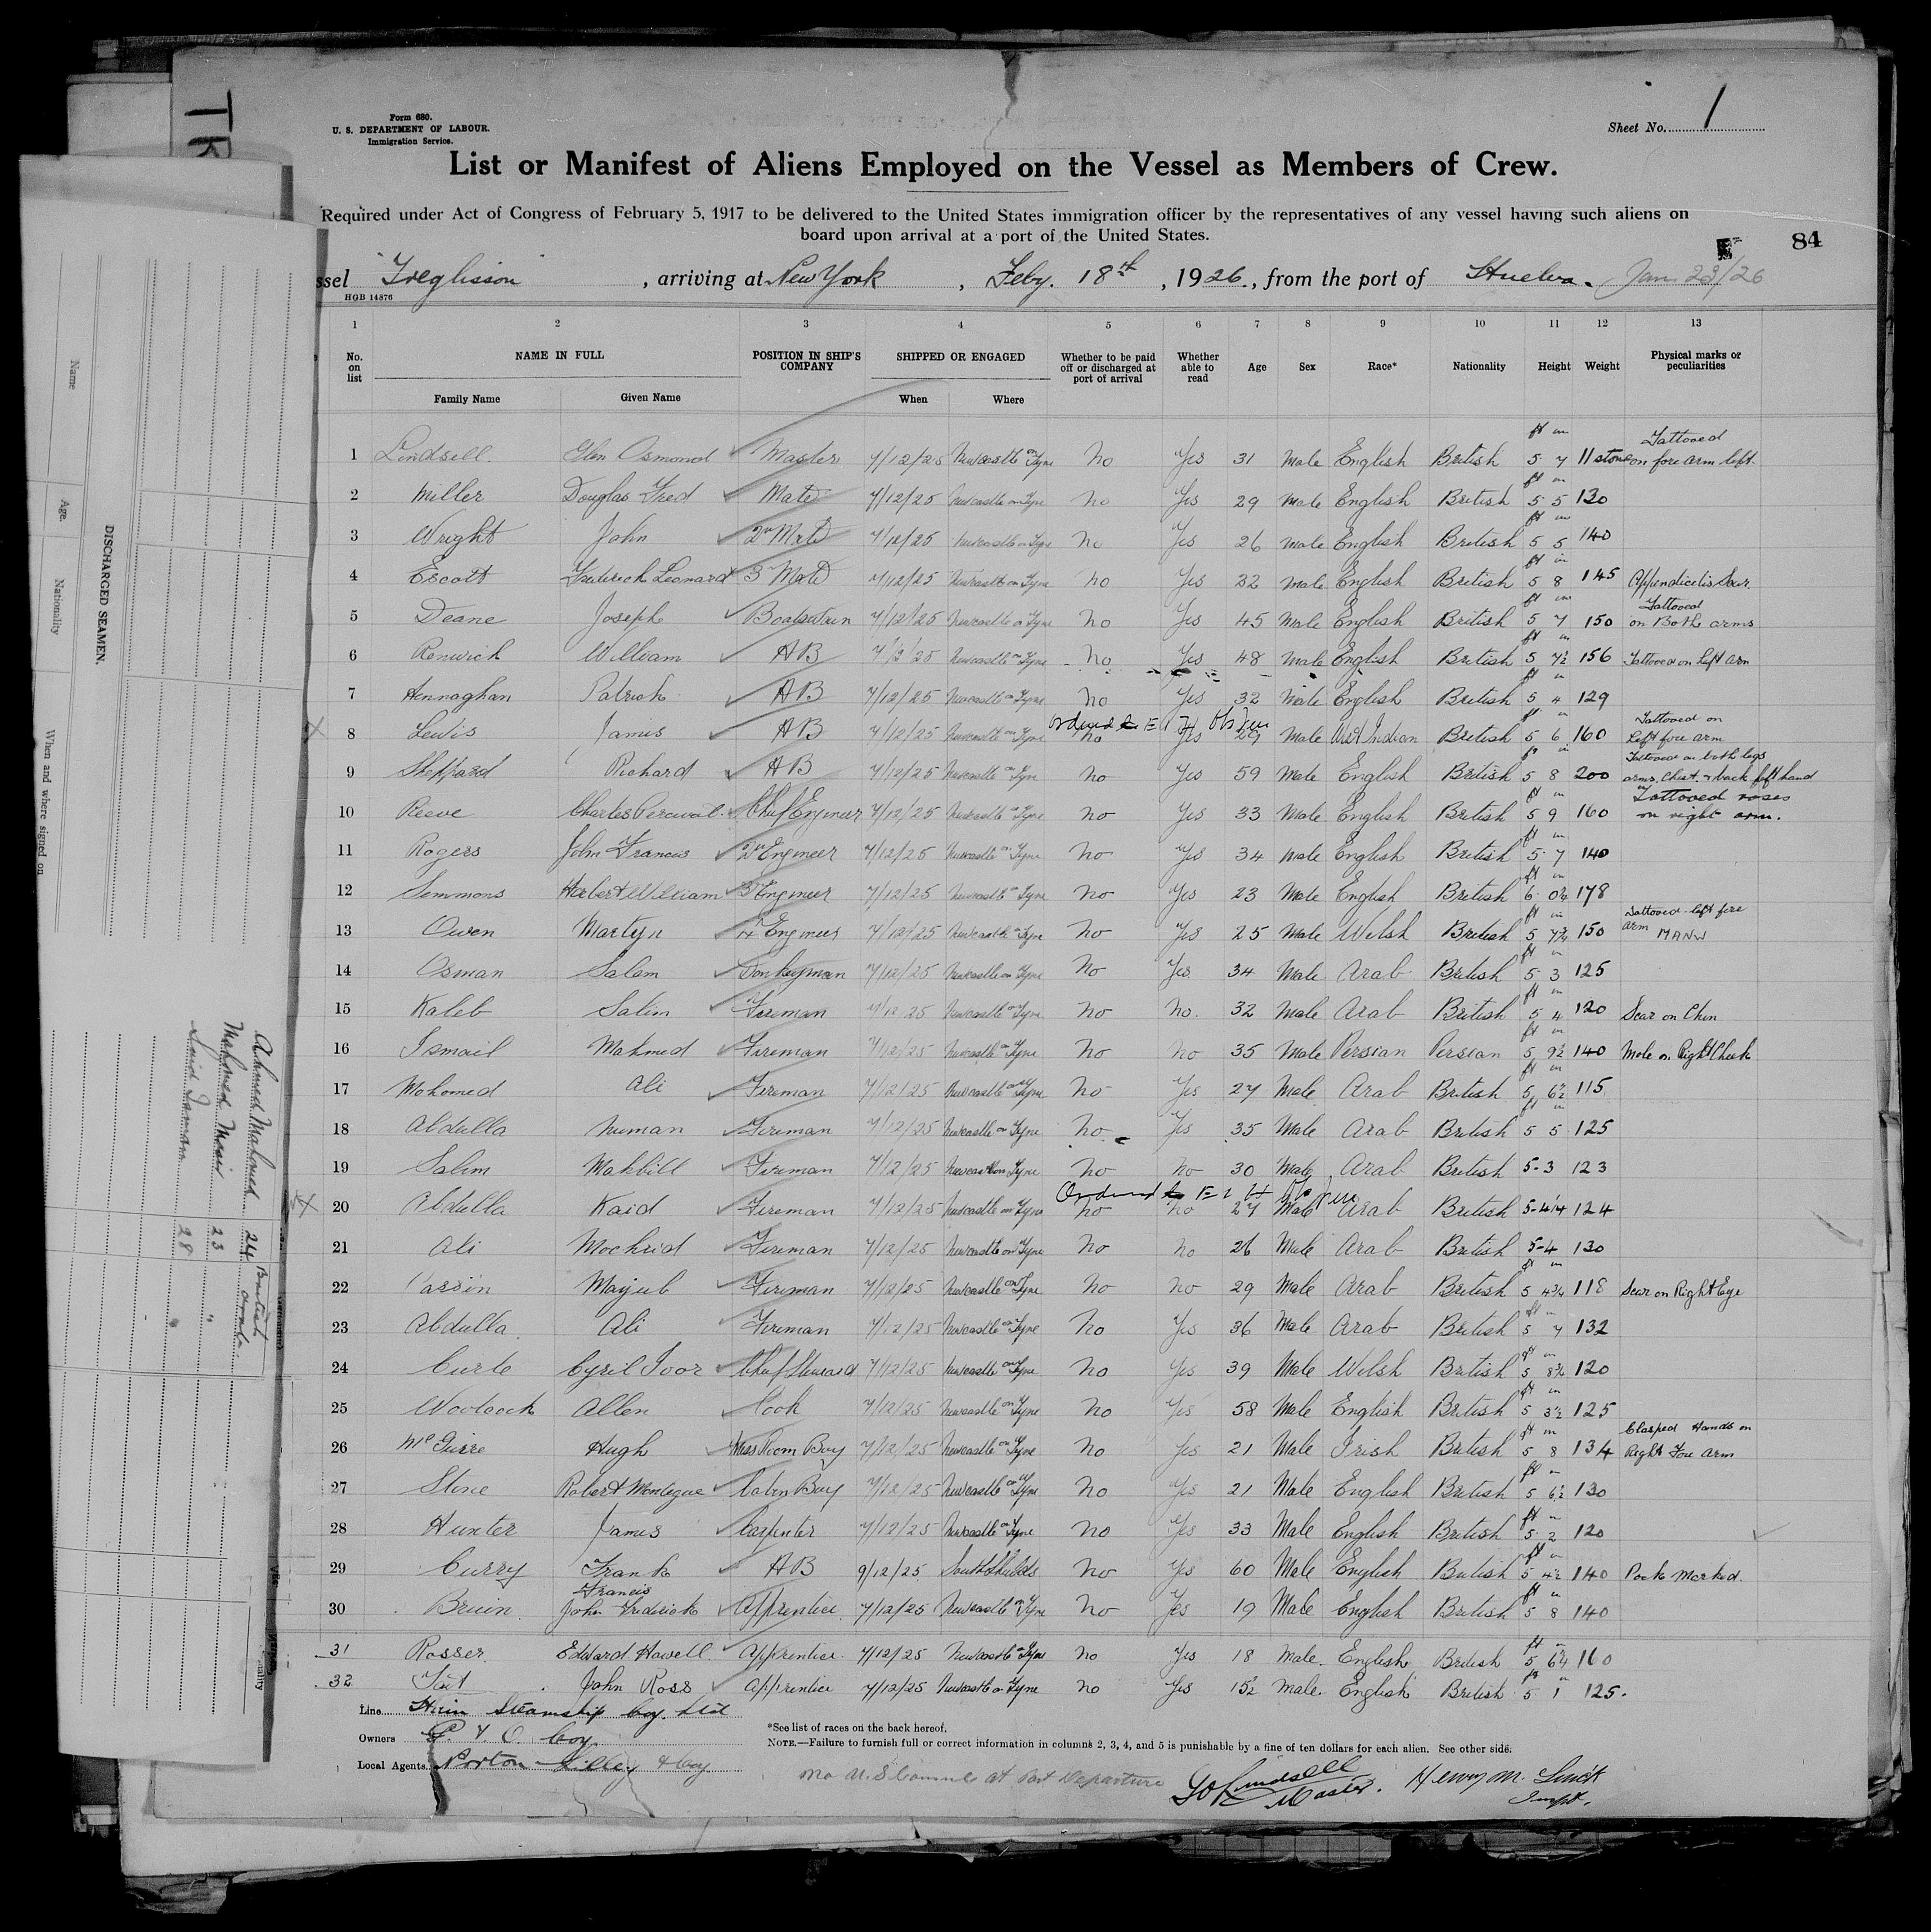 Form 680.
U. S. DEPARTMENT OF LABOUR.
Immigration Service.
Sheet No. 1
List or Manifest of Aliens Employed on the Vessel as Members of Crew.
Required under Act of Congress of February 5, 1917 to be delivered to the United States immigration officer by the representatives of any vessel having such aliens on
board upon arrival at a port of the United States.
84
ssel "Treglisson" , arriving at New York , Feby. 18th , 1926. , from the port of Huelva. Jan 23/26
HGB 14876
1 2 3 4 5 6 7 8 9 10 11 12 13
No. on list NAME IN FULL POSITION IN SHIP'S COMPANY SHIPPED OR ENGAGED Whether to be paid off or discharged at port of arrival Whether able to read Age Sex Race* Nationality Height Weight Physical marks or peculiarities
Family Name Given Name When Where
1 Lindsell Glen Osmond Master 7/12/25 Newcastle on Tyne No Yes 31 Male English British ft in 5 7 11 stone Tattooed on fore arm left.
2 Miller Douglas Fred Mate 7/12/25 Newcastle on Tyne No Yes 29 Male English British ft in 5 5 130
3 Wright John 2n Mate 7/12/25 Newcastle on Tyne No Yes 26 Male English British ft in 5 5 140
4 Escott Frederick Leonard 3 Mate 7/12/25 Newcastle on Tyne No Yes 32 Male English British ft in 5 8 145 Appendicitis Scar.
5 Deane Joseph Boatswain 7/12/25 Newcastle on Tyne No Yes 45 Male English British ft in 5 7 150 Tattooed on Both arms
6 Renwick William AB 7/12/25 Newcastle on Tyne No Yes 48 Male English British ft in 5 7½ 156 Tattooed on Left Arm
7 Hennaghan Patrick AB 7/12/25 Newcastle on Tyne No Yes 32 Male English British ft in 5 4 129
Ordered to E I H
8 Lewis James AB 7/12/25 Newcastle on Tyne No Yes 29 Male West Indian British ft in 5 6 160 Tattooed on Left fore arm
9 Sheppard Richard AB 7/12/25 Newcastle on Tyne No Yes 59 Male English British ft in 5 8 200 Tattooed on both legs arms, Chest & back left hand
10 Reeve Charles Percival Chief Engineer 7/12/25 Newcastle on Tyne No Yes 33 Male English British ft in 5 9 160 Tattooed roses on right arm.
11 Rogers John Francis 2n Engineer 7/12/25 Newcastle on Tyne No Yes 34 Male English British ft in 5 7 140
12 Simmons Herbert William 3 Engineer 7/12/25 Newcastle on Tyne No Yes 23 Male English British ft in 6 0¼ 178
13 Owen Martyn 4 Engineer 7/12/25 Newcastle on Tyne No Yes 25 Male Welsh British ft in 5 7¾ 150 Tattooed left fore arm
14 Osman Salem Donkeyman 7/12/25 Newcastle on Tyne No Yes 34 Male Arab British ft in 5 3 125
15 Kaleb Salim Fireman 7/12/25 Newcastle on Tyne No No. 32 Male Arab British ft in 5 4 120 Scar on Chin
16 Ismail Mahmed Fireman 7/12/25 Newcastle on Tyne No No 35 Male Persian Persian ft in 5 9½ 140 Mole on Right Cheek
17 Mohomed Ali Fireman 7/12/25 Newcastle on Tyne No Yes 27 Male Arab British ft in 5 6½ 115
18 Abdulla Numan Fireman 7/12/25 Newcastle on Tyne No Yes 35 Male Arab British ft in 5 5 125
19 Salim Makbill Fireman 7/12/25 Newcastle on Tyne No No 30 Male Arab British 5-3 123
Ordered to E I H
20 Abdulla Kaid Fireman 7/12/25 Newcastle on Tyne No No 27 Male Arab British 5-4¼ 124
21 Ali Mochrid Fireman 7/12/25 Newcastle on Tyne No No 26 Male Arab British 5-4 130
22 Majub Fireman 7/12/25 Newcastle on Tyne No No 29 Male Arab British ft in 5 4¾ 118 Scar on Right Eye
23 Abdulla Ali Fireman 7/12/25 Newcastle on Tyne No Yes 36 Male Arab British ft in 5 7 132
24 Curle Cyril Ivor Chief Steward 7/12/25 Newcastle on Tyne No Yes 39 Male Welsh British ft in 5 8¾ 120
25 Woolcock Allen Cook 7/12/25 Newcastle on Tyne No Yes 58 Male English British ft in 5 3½ 125
26 Hugh Mess Room Boy 7/12/25 Newcastle on Tyne No Yes 21 Male Irish British ft in 5 8 134 Clasped Hands on Right Fore Arm
27 Stone Robert Montegue Cabin Boy 7/12/25 Newcastle on Tyne No Yes 21 Male English British ft in 5 6½ 130
28 Hunter James Carpenter 7/12/25 Newcastle on Tyne No Yes 33 Male English British ft in 5 2 120
29 Curry Frank AB 9/12/25 South Shields No Yes 60 Male English British ft in 5 4½ 140 Pock Marked.
30 Bruin John Francis Frederick Apprentice 7/12/25 Newcastle on Tyne No Yes 19 Male English British ft in 5 8 140
31 Rosser Edward Howell Apprentice 7/12/25 Newcastle on Tyne No Yes 18 Male English British ft in 5 6¼ 160
32 John Ross Apprentice 7/12/25 Newcastle on Tyne No Yes 15½ Male English British ft in 5 1 125.
Line Hain Steamship Coy. Ltd
Owners P. & O. Coy.
Local Agents. Norton Lilley & Coy
*See list of races on the back hereof.
NOTE.—Failure to furnish full or correct information in columns 2, 3, 4, and 5 is punishable by a fine of ten dollars for each alien. See other side.
No U.S Consul at Port Departure
GO Lindsell Master.
Henry M.
Inspt.
DISCHARGED SEAMEN.
Name Age. Nationality When and where signed on
Ahmed Mahmed 24 British Arab.
Mahomed 23 " "
Said 28 "